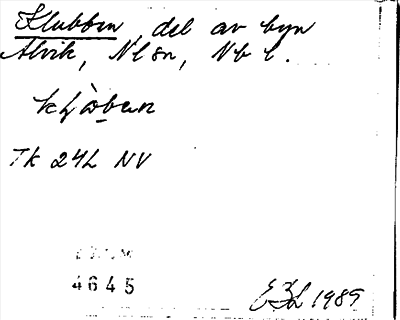 Klubben, del av byn
Alvik, Nlsn, Nb l.
Tk 24L NV
4645
EBL 1989